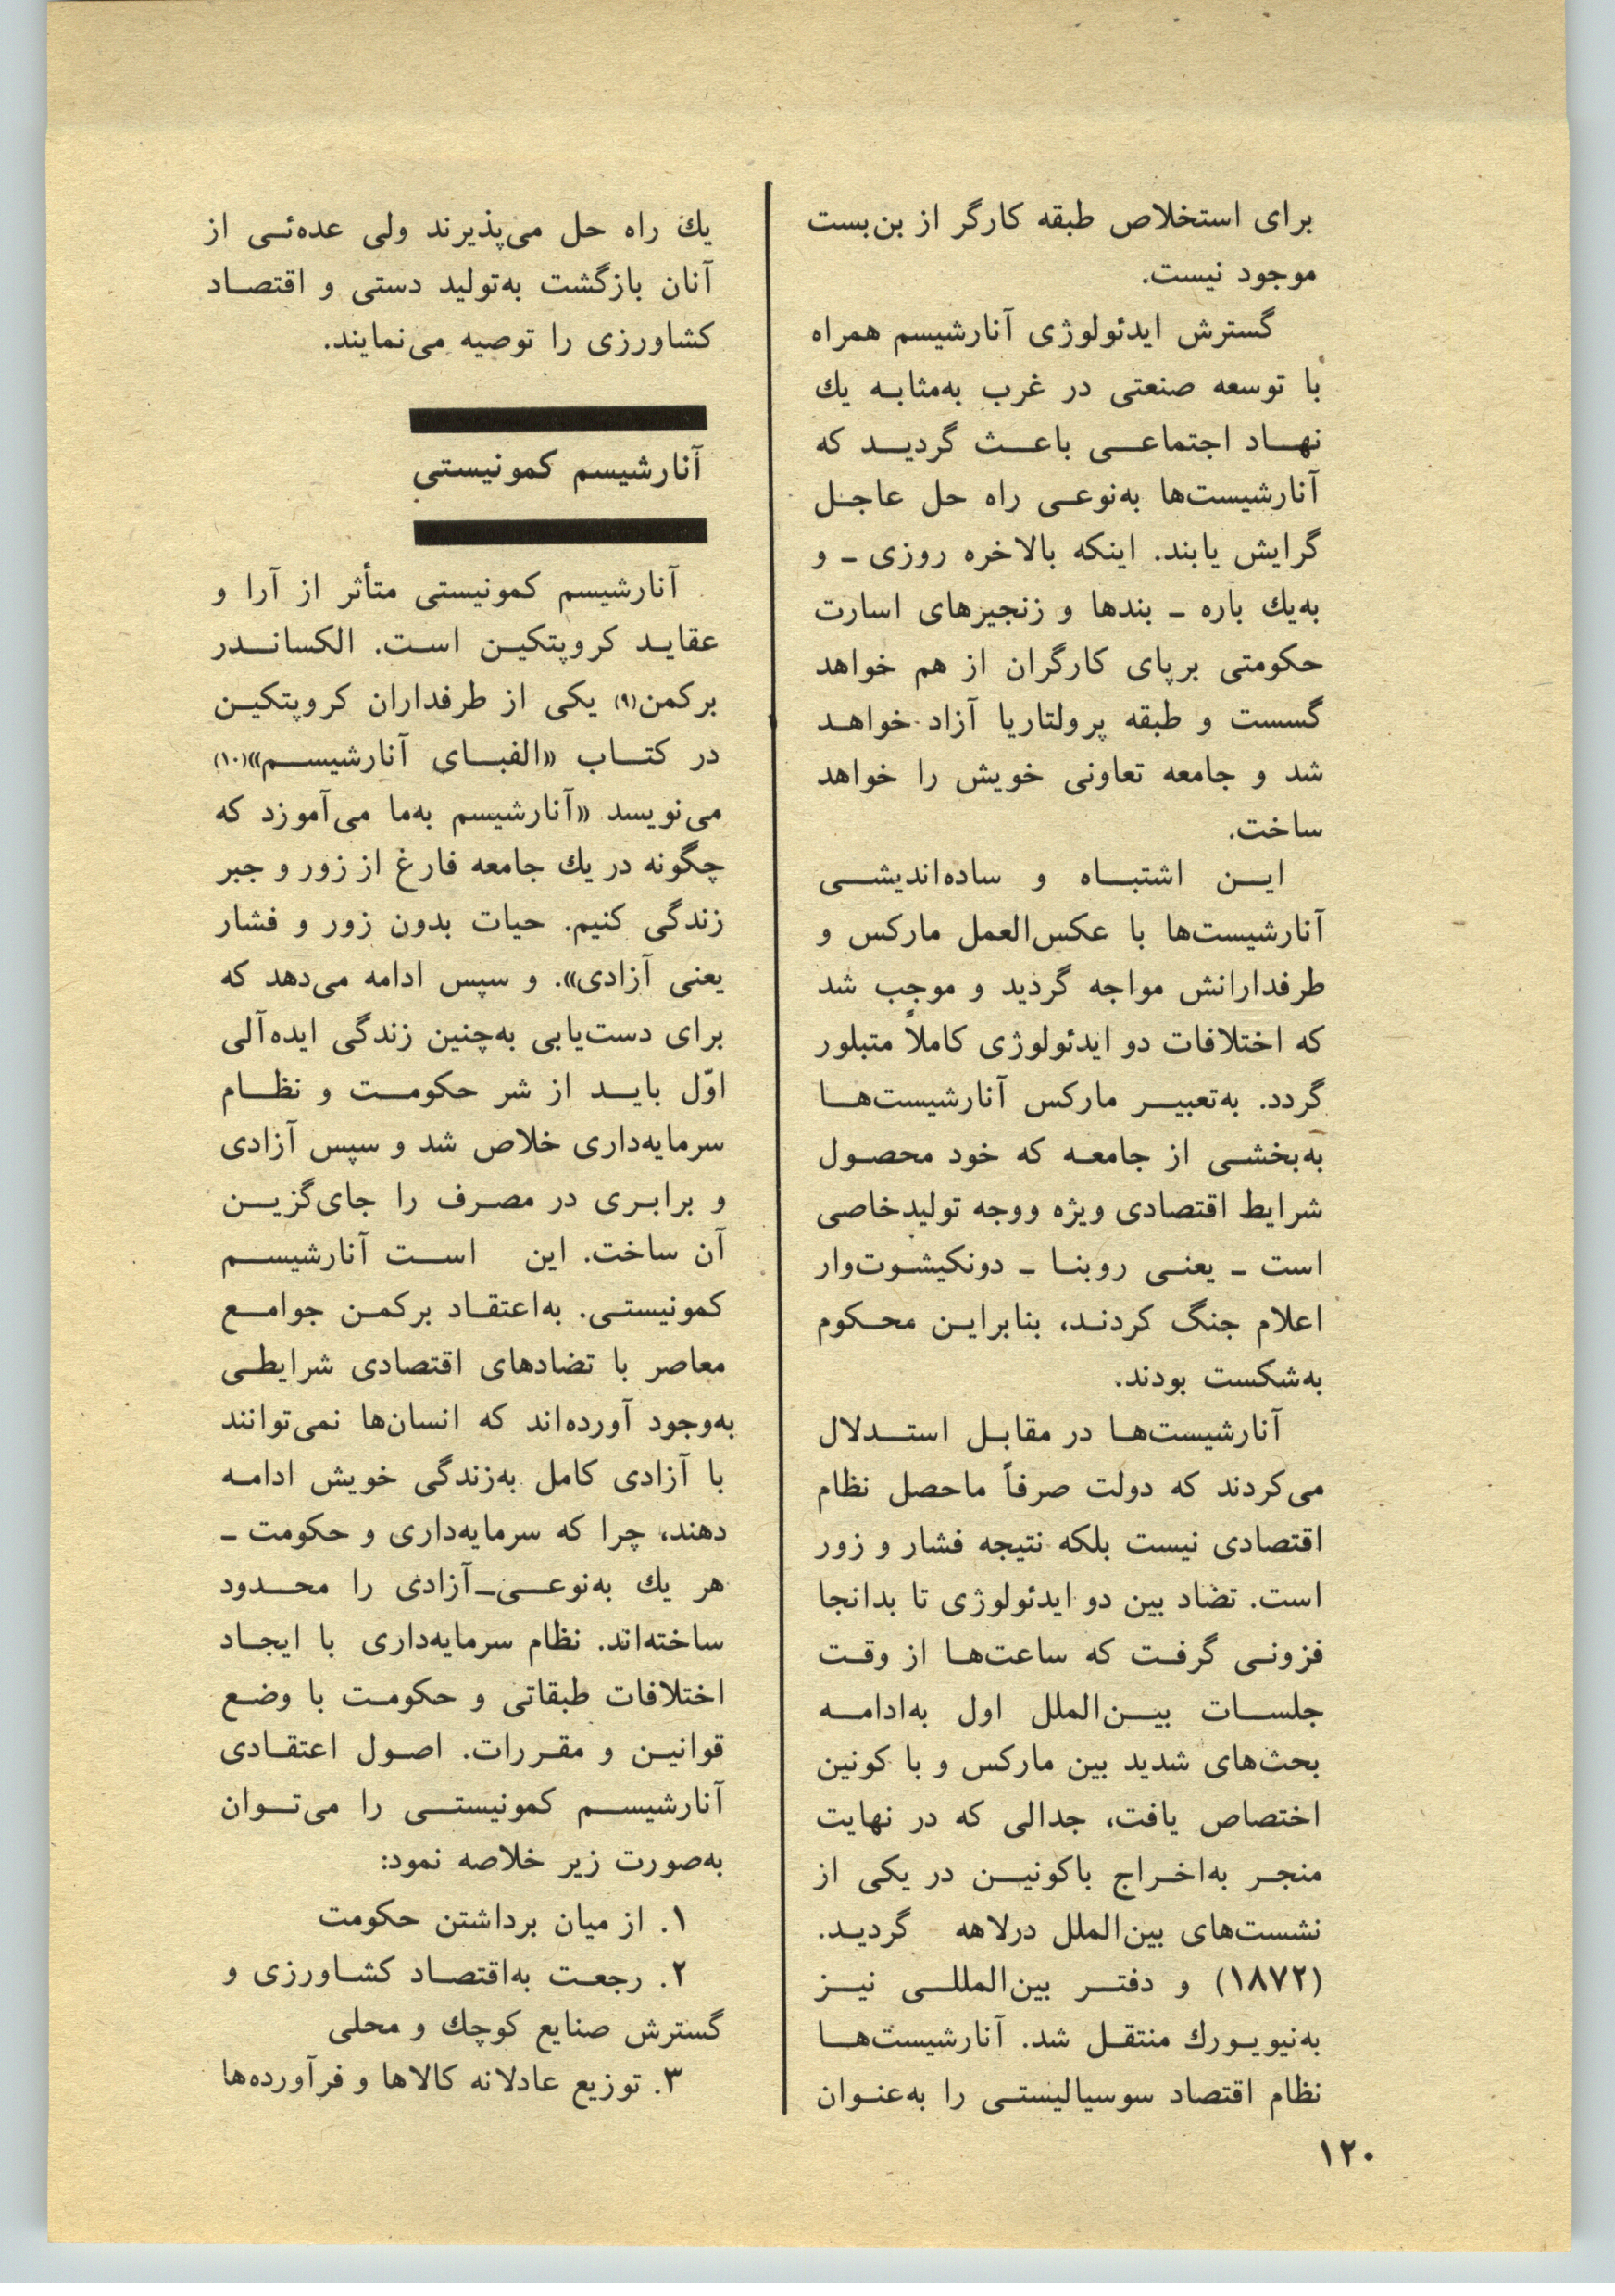 برای استخلاص طبقه کارگر از بن‌بست
موجود نیست.
گسترش ایدئولوژی آنارشیسم همراه
با توسعه صنعتی در غرب به‌مثابه یك
نهاد اجتماعی باعث گردید که
آنارشیست‌ها به‌نوعی راه حل عاجل
گرایش یابند. اینکه بالاخره روزی ـ و
به‌یك باره ـ بندها و زنجیرهای اسارت
حکومتی برپای کارگران از هم خواهد
گسست و طبقه پرولتاریا آزاد خواهد
شد و جامعه تعاونی خویش را خواهد
ساخت.
این اشتباه و ساده‌اندیشی
آنارشیست‌ها با عکس‌العمل مارکس و
طرفدارانش مواجه گردید و موجب شد
که اختلافات دو ایدئولوژی کاملاً متبلور
گردد. به‌تعبیر مارکس آنارشیست‌ها
به‌بخشی از جامعه که خود محصول
شرایط اقتصادی ویژه ووجه تولیدخاصی
است ـ یعنی روبنا ـ دونکیشوت‌وار
اعلام جنگ کردند، بنابراین محکوم
به‌شکست بودند.
آنارشیست‌ها در مقابل استدلال
می‌کردند که دولت صرفاً ماحصل نظام
اقتصادی نیست بلکه نتیجه فشار و زور
است. تضاد بین دو ایدئولوژی تا بدانجا
فزونی گرفت که ساعت‌ها از وقت
جلسات بین‌الملل اول به‌ادامه
بحث‌های شدید بین مارکس و با کونین
اختصاص یافت، جدالی که در نهایت
منجر به‌اخراج باکونین در یکی از
نشست‌های بین‌الملل درلاهه گردید.
(۱۸۷۲) و دفتر بین‌المللی نیز
به‌نیویورك منتقل شد. آنارشیست‌ها
نظام اقتصاد سوسیالیستی را به‌عنوان
یك راه حل می‌پذیرند ولی عده‌ئی از
آنان بازگشت به‌تولید دستی و اقتصاد
کشاورزی را توصیه می‌نمایند.
آنارشیسم کمونیستی
آنارشیسم کمونیستی متأثر از آرا و
عقاید کروپتکین است. الکساندر
برکمن(۹) یکی از طرفداران کروپتکین
در کتاب «الفبای آنارشیسم»(۱۰)
می‌نویسد «آنارشیسم به‌ما می‌آموزد که
چگونه در یك جامعه فارغ از زور و جبر
زندگی کنیم. حیات بدون زور و فشار
یعنی آزادی». و سپس ادامه می‌دهد که
برای دست‌یابی به‌چنین زندگی ایده‌آلی
اوّل باید از شر حکومت و نظام
سرمایه‌داری خلاص شد و سپس آزادی
و برابری در مصرف را جای‌گزین
آن ساخت. این است آنارشیسم
کمونیستی. به‌اعتقاد برکمن جوامع
معاصر با تضادهای اقتصادی شرایطی
به‌وجود آورده‌اند که انسان‌ها نمی‌توانند
با آزادی کامل به‌زندگی خویش ادامه
دهند، چرا که سرمایه‌داری و حکومت ـ
هر یك به‌نوعی‌ـ‌آزادی را محدود
ساخته‌اند. نظام سرمایه‌داری با ایجاد
اختلافات طبقاتی و حکومت با وضع
قوانین و مقررات. اصول اعتقادی
آنارشیسم کمونیستی را می‌توان
به‌صورت زیر خلاصه نمود:
۱. از میان برداشتن حکومت
۲. رجعت به‌اقتصاد کشاورزی و
گسترش صنایع کوچك و محلی
۳. توزیع عادلانه کالاها و فرآورده‌ها
۱۲۰